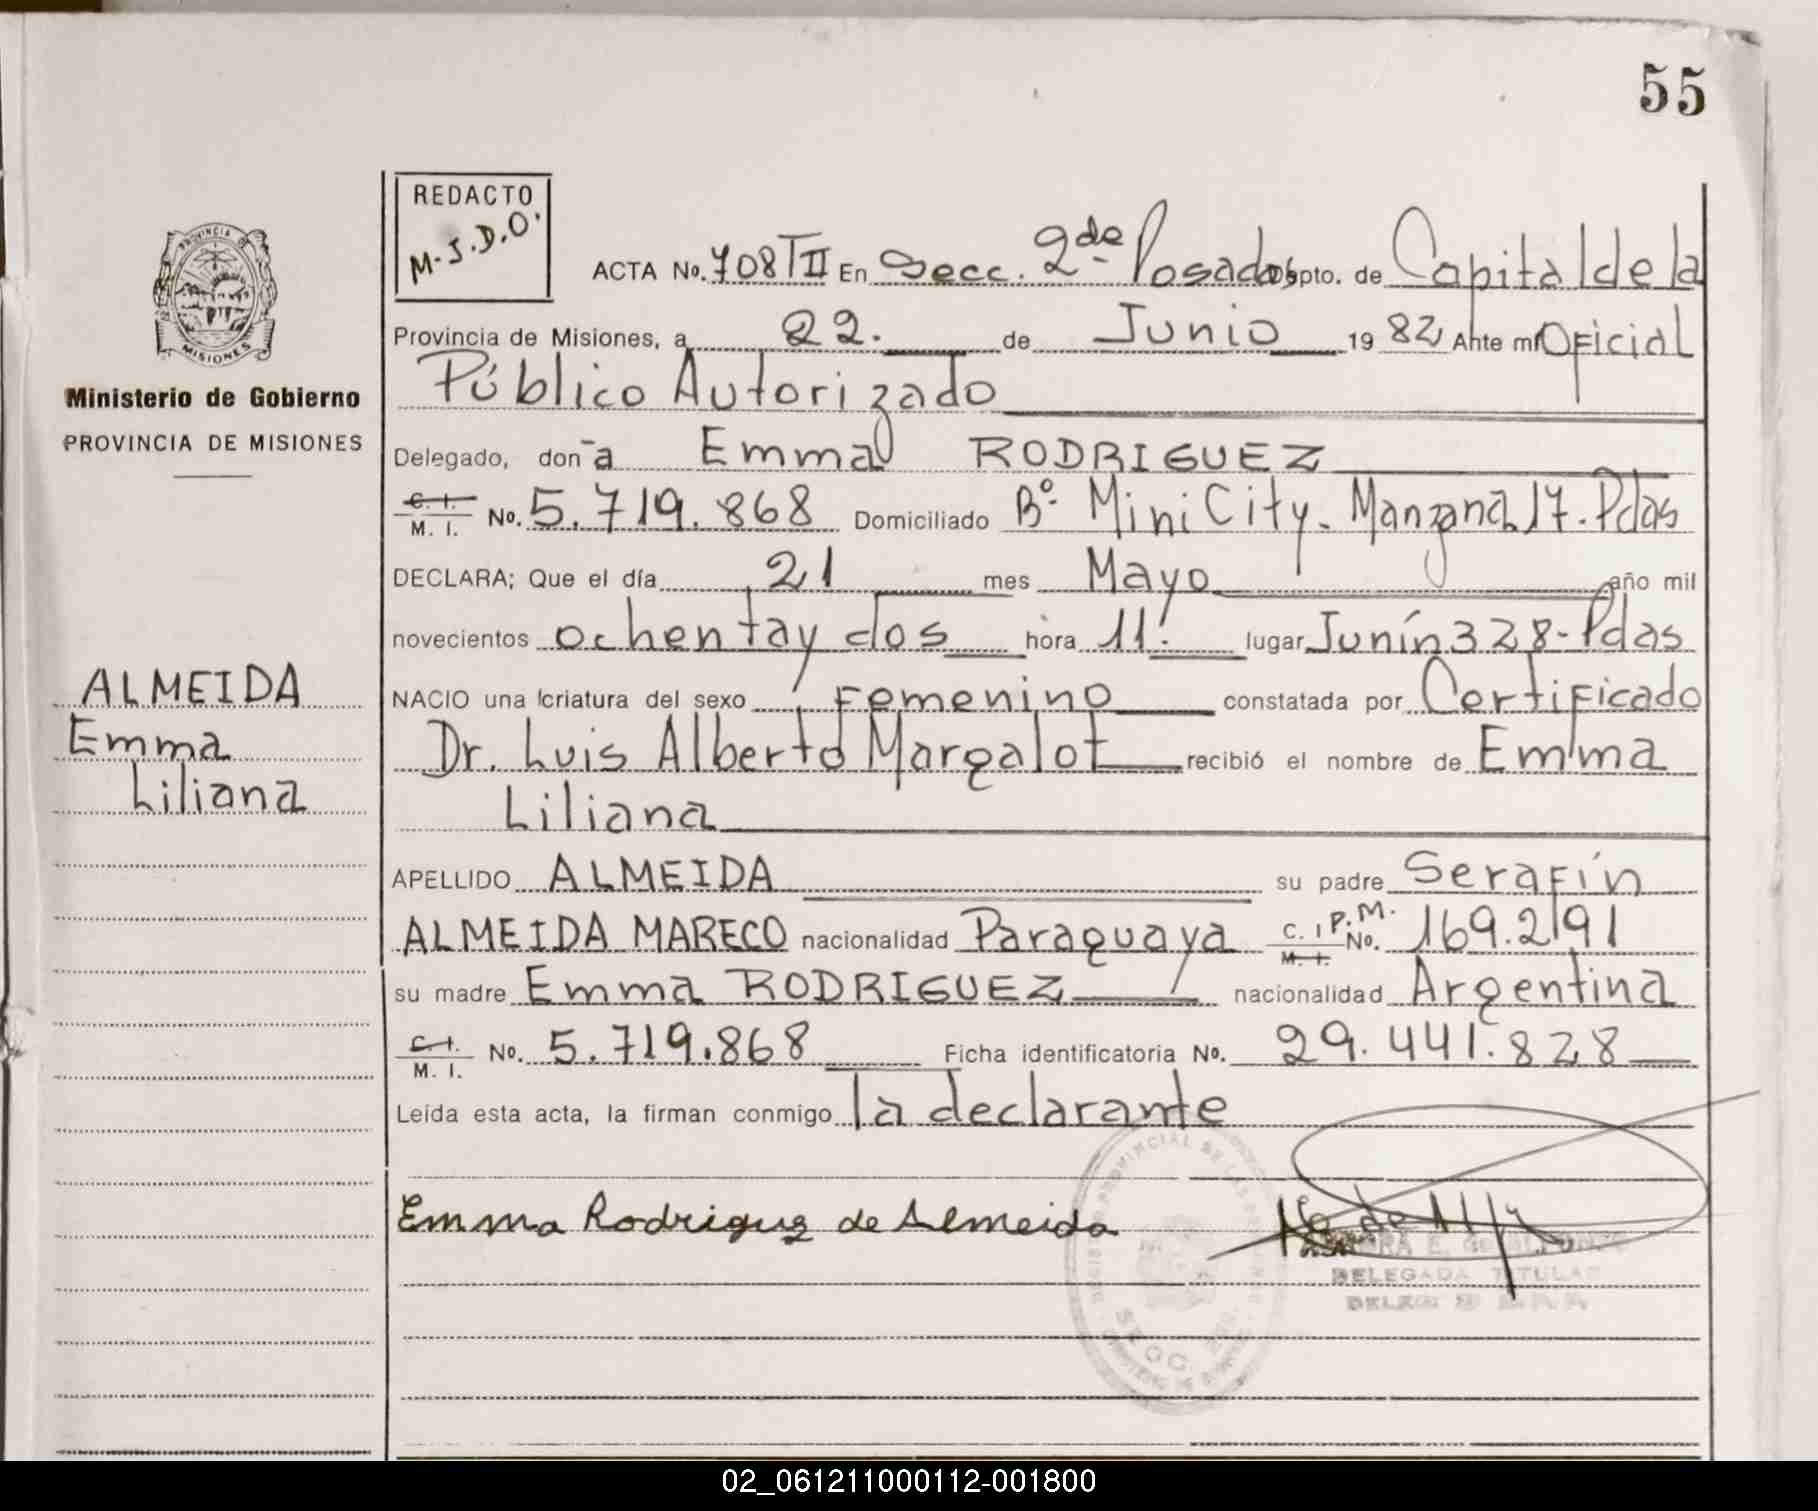 55
REDACTO
M.J.D.O.
PROVINCIA DE
MISIONES
Ministerio de Gobierno
PROVINCIA DE MISIONES
ALMEIDA
Emma
Liliana
ACTA No. 708 TII En Secc. 2da de Posadas Dpto. de Capital de la
Provincia de Misiones, a 22. de Junio 1982 Ante mi Oficial
Público Autorizado
Delegado, don~a Emma RODRIGUEZ
C. I. M. I. No. 5.719.868 Domiciliado Bº MiniCity. Manzana 17. Pdas
DECLARA; Que el día 21 mes Mayo año mil
novecientos ochenta y dos hora 11. lugar Junín 328-Pdas
NACIO una criatura del sexo Femenino constatada por Certificado
Dr. Luis Alberto Margalot recibió el nombre de Emma
Liliana
APELLIDO ALMEIDA su padre Serafín
ALMEIDA MARECO nacionalidad Paraguaya C. I. P.M. M. I. No. 169.291
su madre Emma RODRIGUEZ nacionalidad Argentina
C. I. M. I. No. 5.719.868 Ficha identificatoria No. 29.441.828
Leída esta acta, la firman conmigo la declarante
Emma Rodriguez de Almeida
DELEGADA TITULAR
02_061211000112-001800